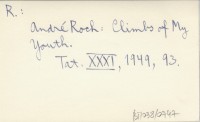 R.:
André Roch: Climbs of My
Youth.
Tat. XXXI, 1949, 93.